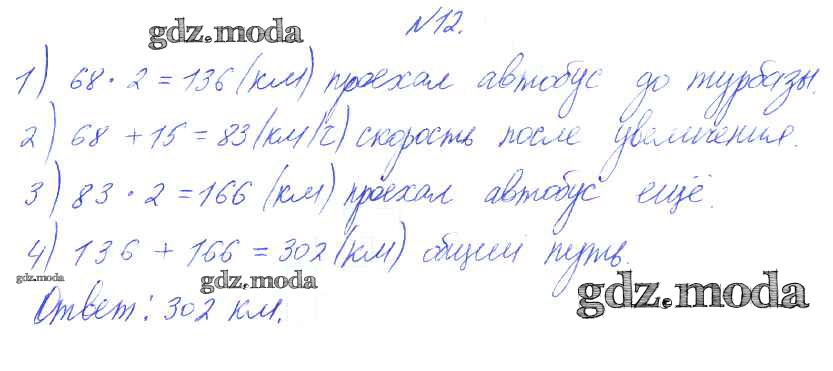 №12.
gdz.moda
1) 68 · 2 = 136 (км) проехал автобус до турбазы.
2) 68 + 15 = 83 (км/ч) скорость после увеличения.
3) 83 · 2 = 166 (км) проехал автобус ещё.
4) 136 + 166 = 302 (км) общий путь.
gdz.moda
gdz.moda
gdz.moda
Ответ: 302 км.